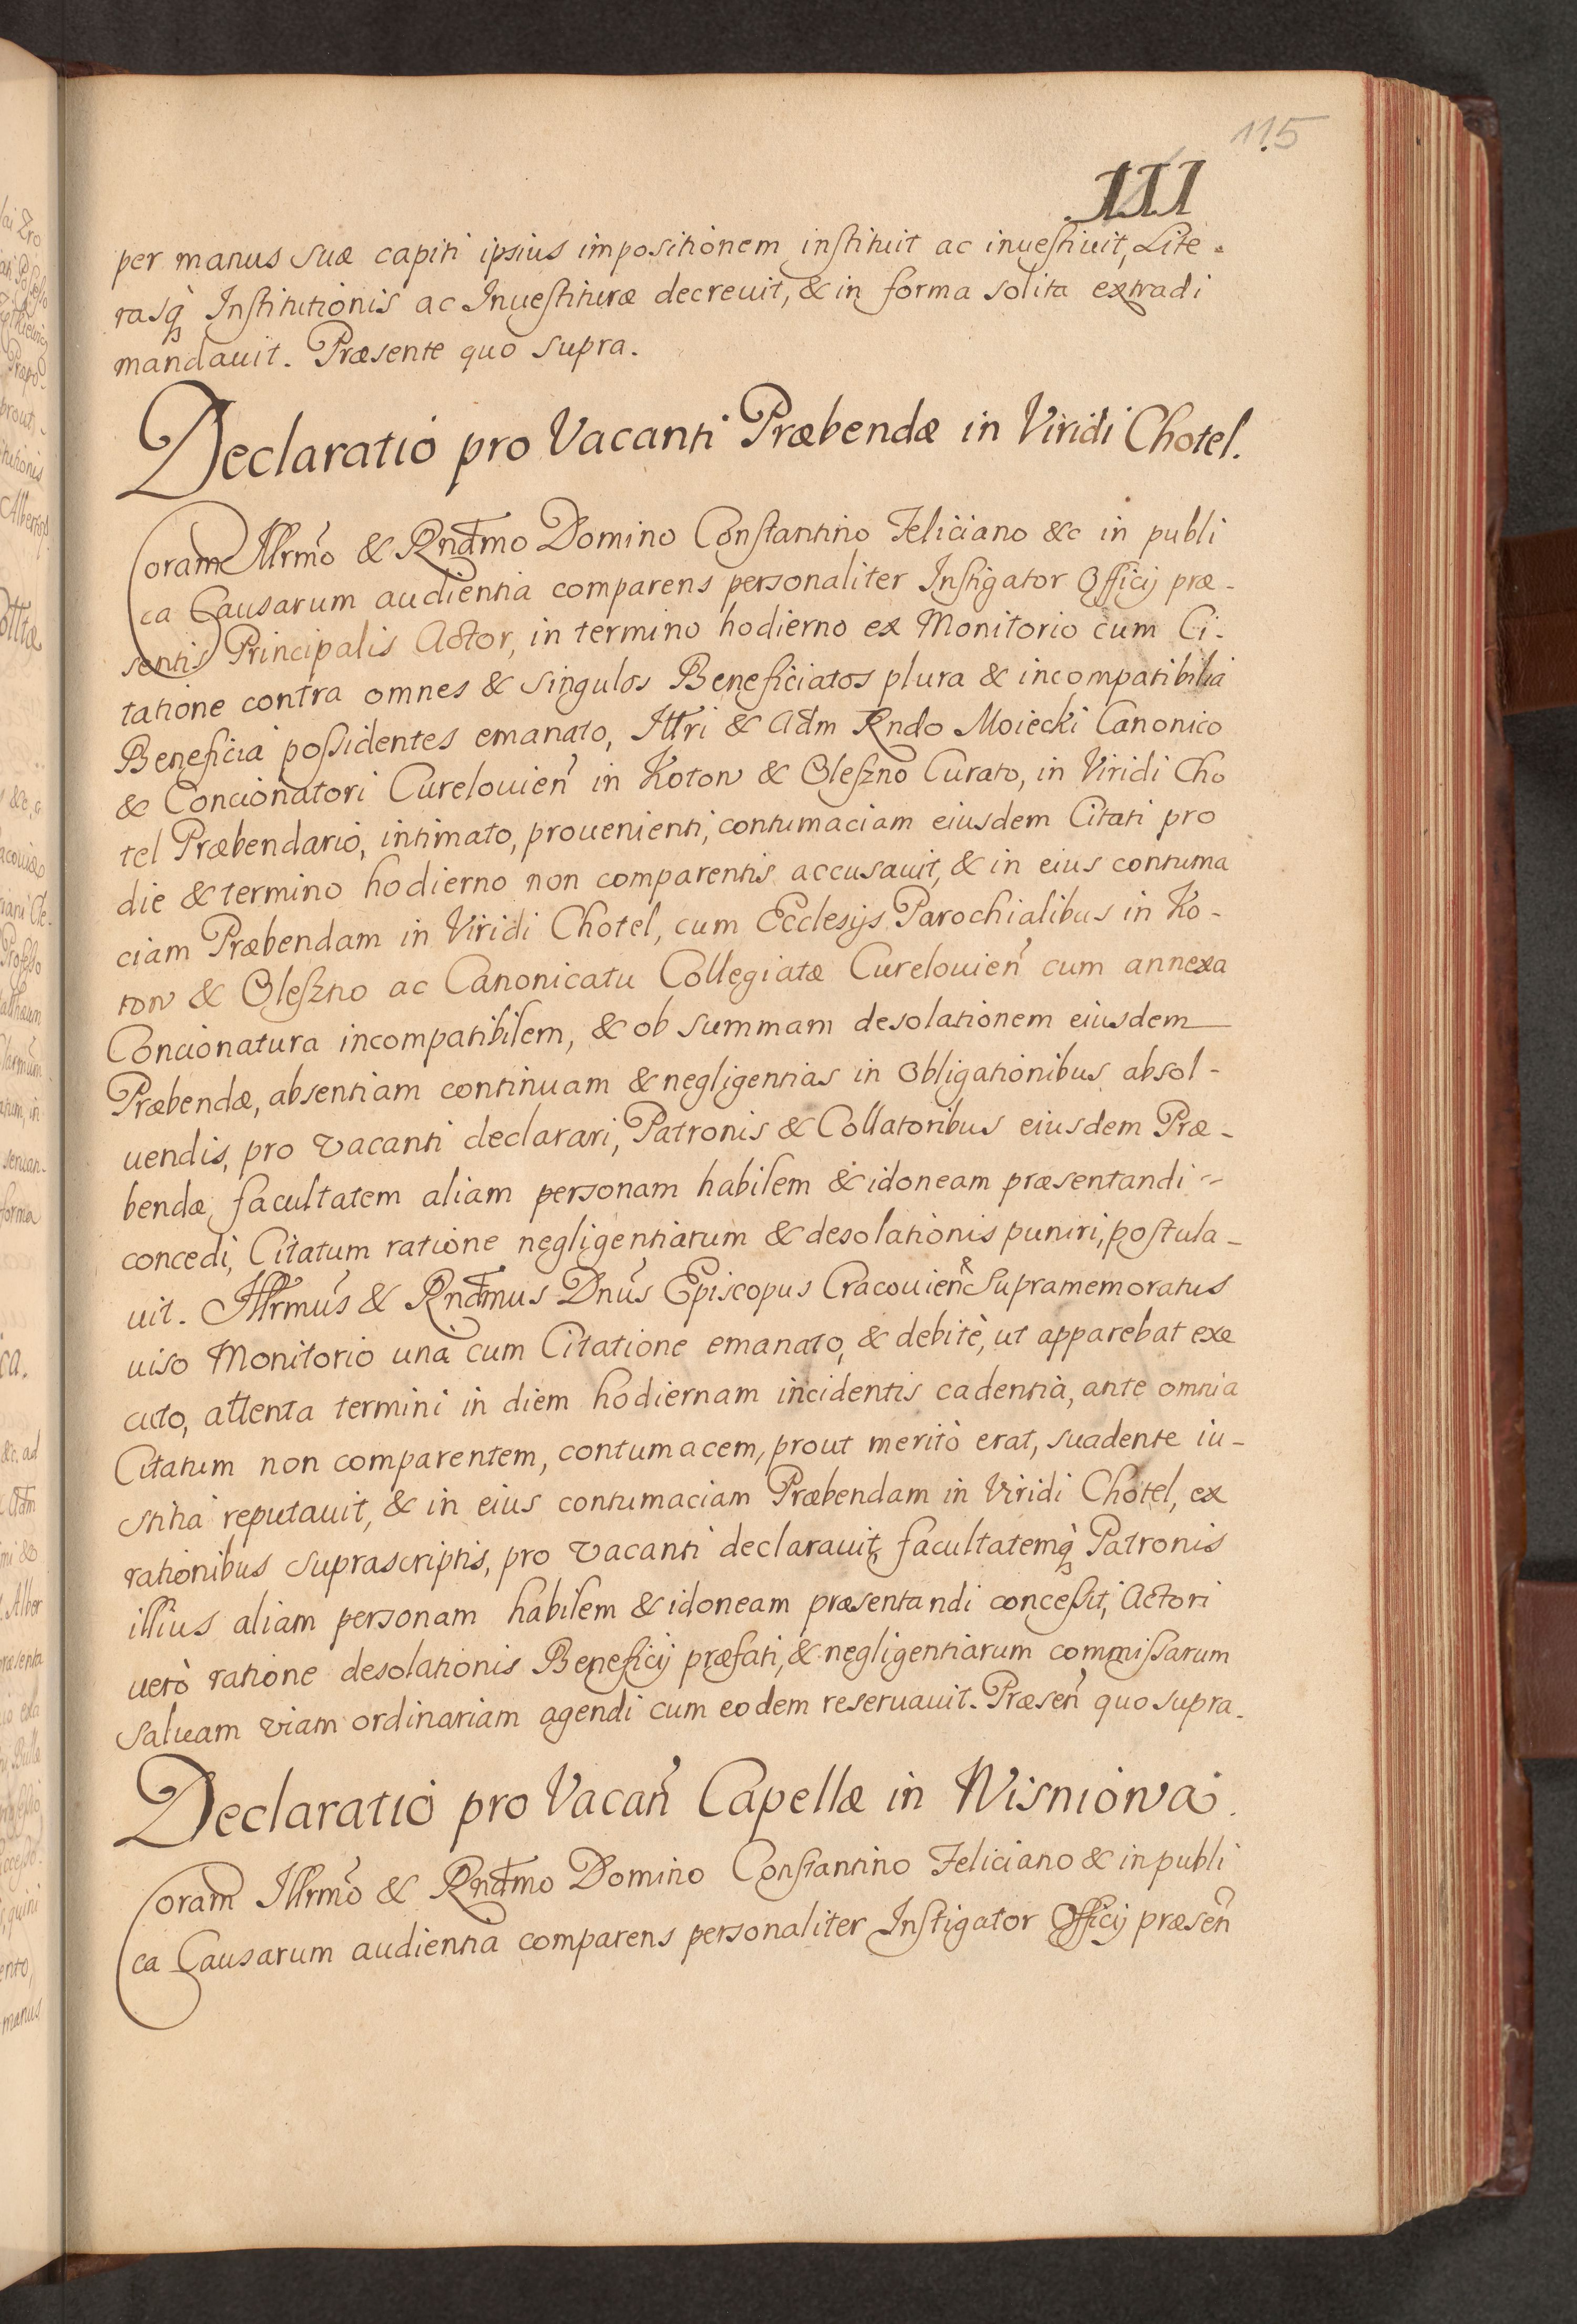 115
111
per manus suæ capiti ipsius impositionem instituit ac inuestiuit, Lite-
rasq̀ Institutionis ac Inuestituræ decreuit, & in forma solita extradi
mandauit. Præsente quo supra.
Declaratio pro Vacanti Præbendæ in Viridi Chotel.
Coram Illrmo & Rndmo Domino Constantino Feliciano &c in publi
ca Causarum audientia comparens personaliter Instigator Officij præ-
sentis Principalis Actor, in termino hodierno ex Monitorio cum Ci-
tatione contra omnes & singulos Beneficiatos plura & incompatibilia
Beneficia possidentes emanato, Illri & Adm Rndo Moiecki Canonico
& Concionatori Curelouien̄ in Koton & Oleszno Curato, in Viridi Cho
tel Præbendario, intimato, prouenienti, contumaciam eiusdem Citati pro
die & termino hodierno non comparentis accusauit, & in eius contuma
ciam Præbendam in Viridi Chotel, cum Ecclesijs Parochialibus in Ko-
ton & Oleszno ac Canonicatu Collegiatæ Curelouien̄ cum annexa
Concionatura incompatibilem, & ob summam desolationem eiusdem
Præbendæ, absentiam continuam & negligentias in obligationibus absol-
uendis, pro vacanti declarari, Patronis & Collatoribus eiusdem Præ-
bendæ, facultatem aliam personam habilem & idoneam præsentandi
concedi, Citatum ratione negligentiarum & desolationis puniri, postula-
uit. Illrmus & Rndmus Dnus Episcopus Cracouien̄ Supramemoratus
uiso Monitorio una cum Citatione emanato, & debitè, ut apparebat exe
cuto, attenta termini in diem hodiernam incidentis cadentia, ante omnia
Citatum non comparentem, contumacem, prout meritò erat, suadente iu-
stitia reputauit, & in eius contumaciam Præbendam in Viridi Chotel, ex
rationibus suprascriptis, pro vacanti declarauit, facultatemq̀ Patronis
illius aliam personam habilem & idoneam præsentandi concessit, Actori
uerò ratione desolationis Beneficij præfati, & negligentiarum commissarum
saluam viam ordinariam agendi cum eodem reseruauit. Præsen̄ quo supra.
Declaratio pro Vacan̄ Capellæ in Wisniowa.
Coram Illrmo & Rndmo Domino Constantino Feliciano & in publi
ca Causarum audientia comparens personaliter Instigator Officij præsen̄